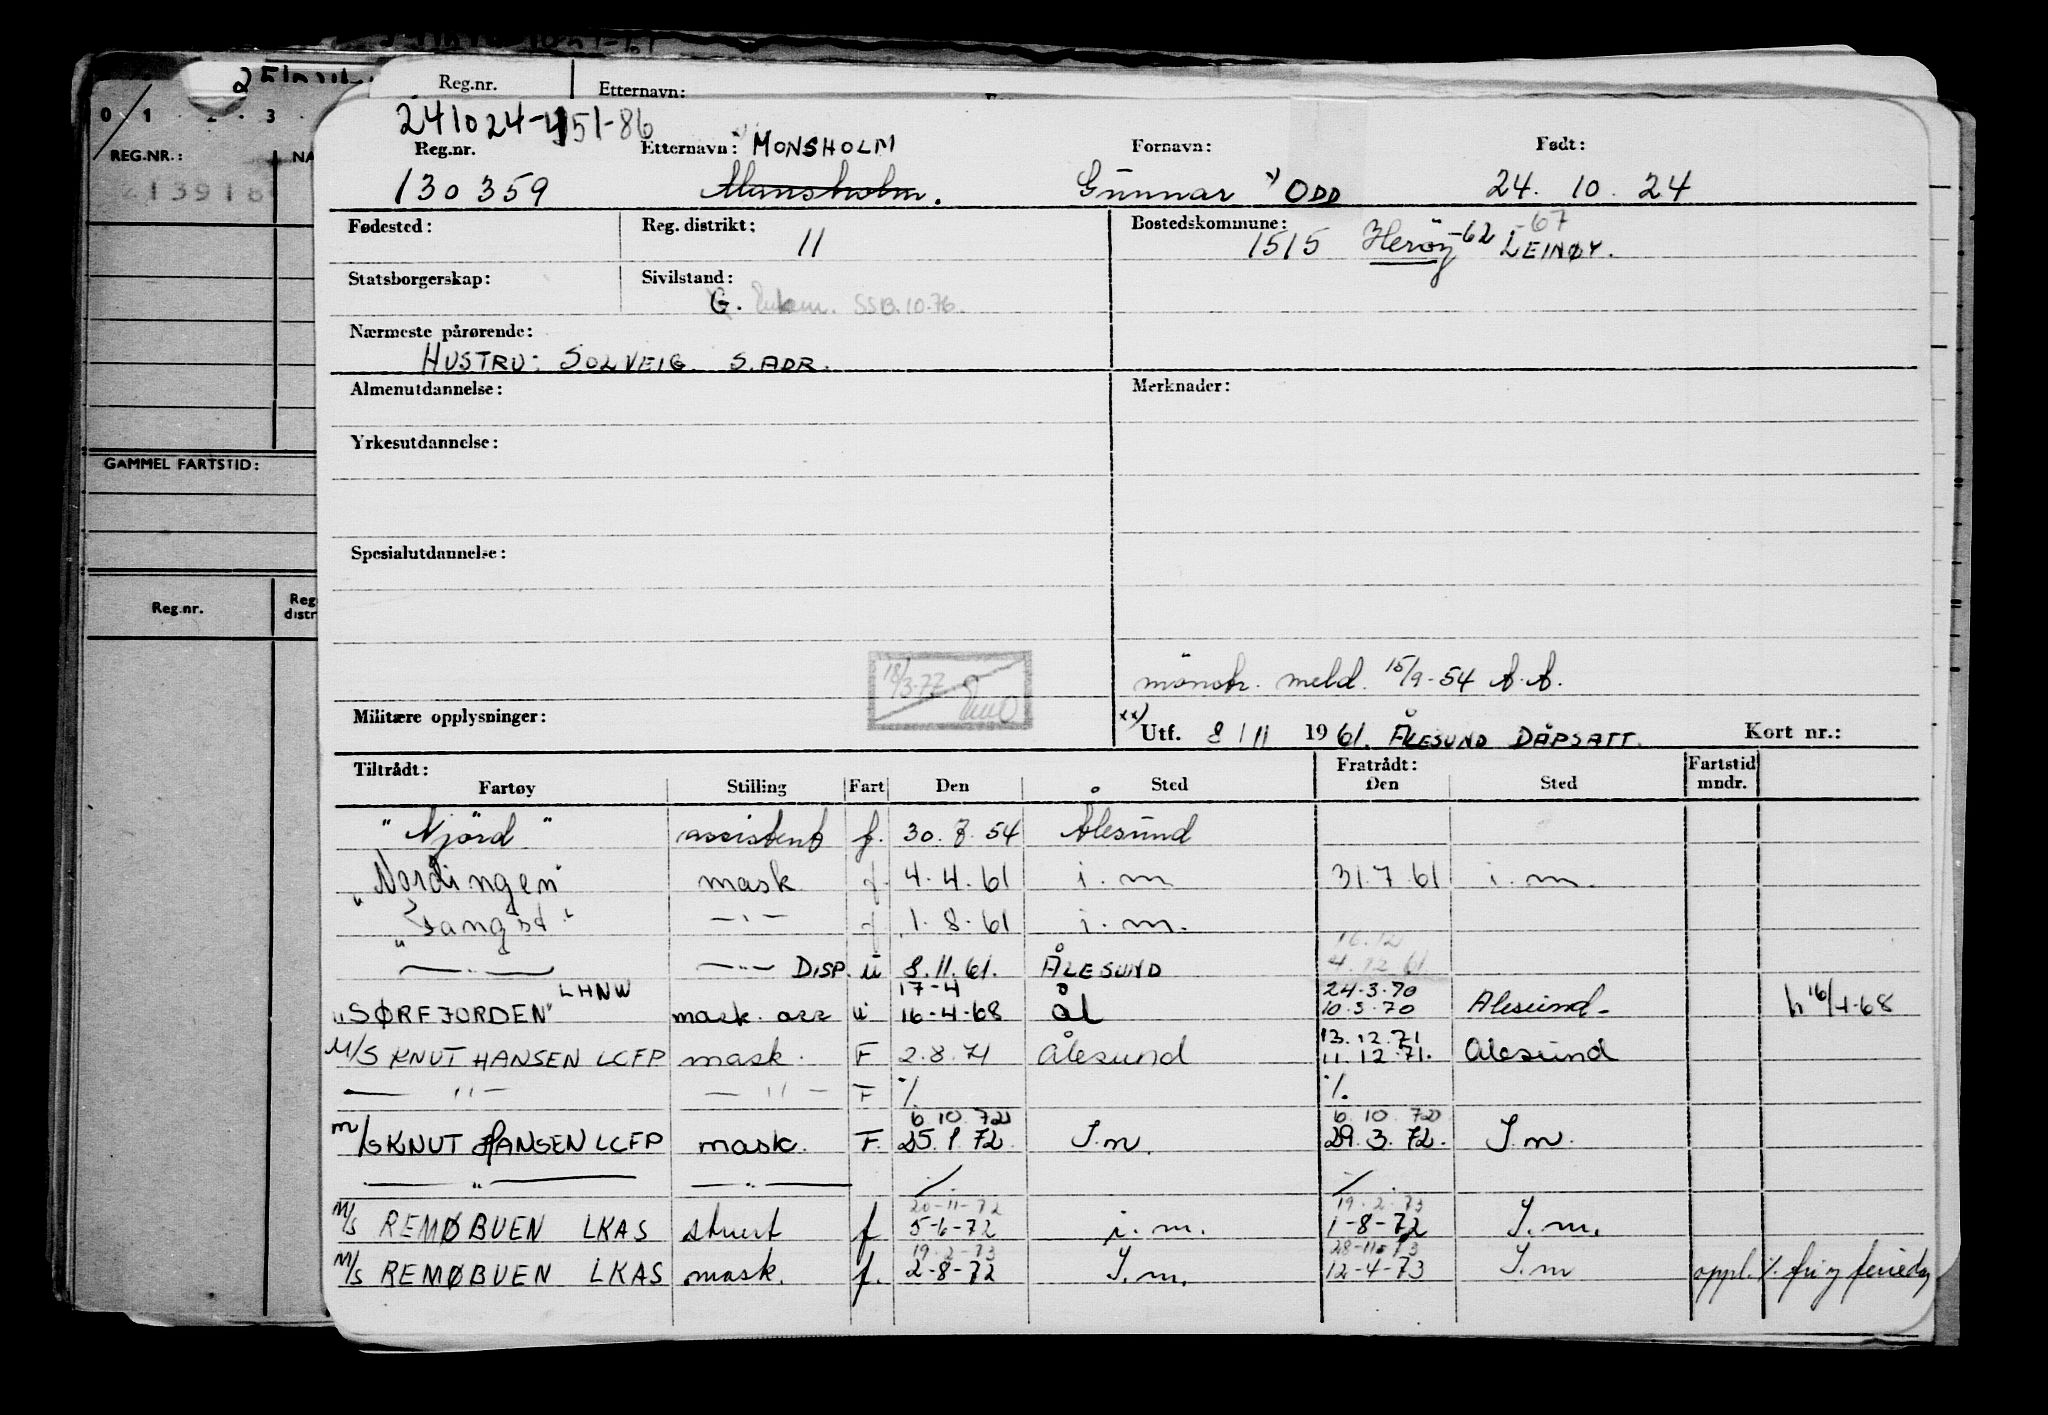 Reg.nr. Etternavn:
0 1 2 3
REG.NR.: NA
213918
GAMMEL FARTSTID:
Reg.nr. Reg distr
241024-451-86
Reg.nr. Etternavn: MONSHOLM Fornavn: Født:
130359 Monsholm. Gunnar ODD 24. 10. 24
Fødested: Reg. distrikt: 11 Bostedskommune: 1515 Herøy -62 LEINØY. -67
Statsborgerskap: Sivilstand:
G. SSB.10.76.
Nærmeste pårørende:
HUSTRU: SOLVEIG S. ADR.
Almenutdannelse: Merknader:
Yrkesutdannelse:
Spesialutdannelse:
18/3.77
mönstr. meld. 15/9-54 A.A.
Militære opplysninger: xx) Utf. 8/11 1961. ÅLESUND DÅPSATT. Kort nr.:
Tiltrådt: Fratrådt: Fartstid
Fartøy Stilling Fart Den Sted Den Sted mndr.
"Njörd" assistent f. 30. 7. 54 Ålesund
"Nordingen" mask f. 4. 4. 61 i. m 31. 7. 61 i. m.
"Fangst" —"— f 1. 8. 61 i. m.
16.12
—"— —"— DISP. u 8. 11. 61. ÅLESUND 4.12.61
LHNW 17-4 24-3-70
"SØRFJORDEN" mask. ass u 16-4-68 Ål 10.3.70 Ålesund h 16/4-68
13.12.71
M/S KNUT HANSEN LCFP mask. F 2. 8. 71 Ålesund 11. 12. 71. Ålesund
—"— —"— F %. %.
6. 10. 72 6. 10. 72
m/s KNUT HANSEN LCFP mask. F. 25. 1. 72. I.m. 29. 3. 72. I.m.
—"— —"— %. %.
20-11-72 19.2.73
M/S REMØBUEN LKAS stuert f 5-6-72 i. m. 1-8-72 I. m.
19.2-73 28-11-73
M/S REMØBUEN LKAS mask. f. 2-8-72 I. m. 12-4-73 I. m oppl. %. fri og feriedg